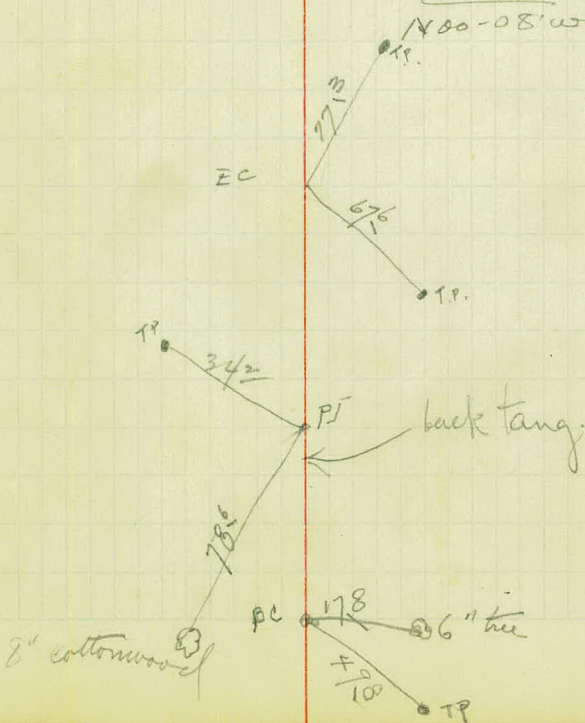 N00-08'W
T.P.
77.3
EC
67.6
T.P.
TP
34.2
PI
back tang.
78.6
BC
17.8
6" tree
8" cottonwood
TP